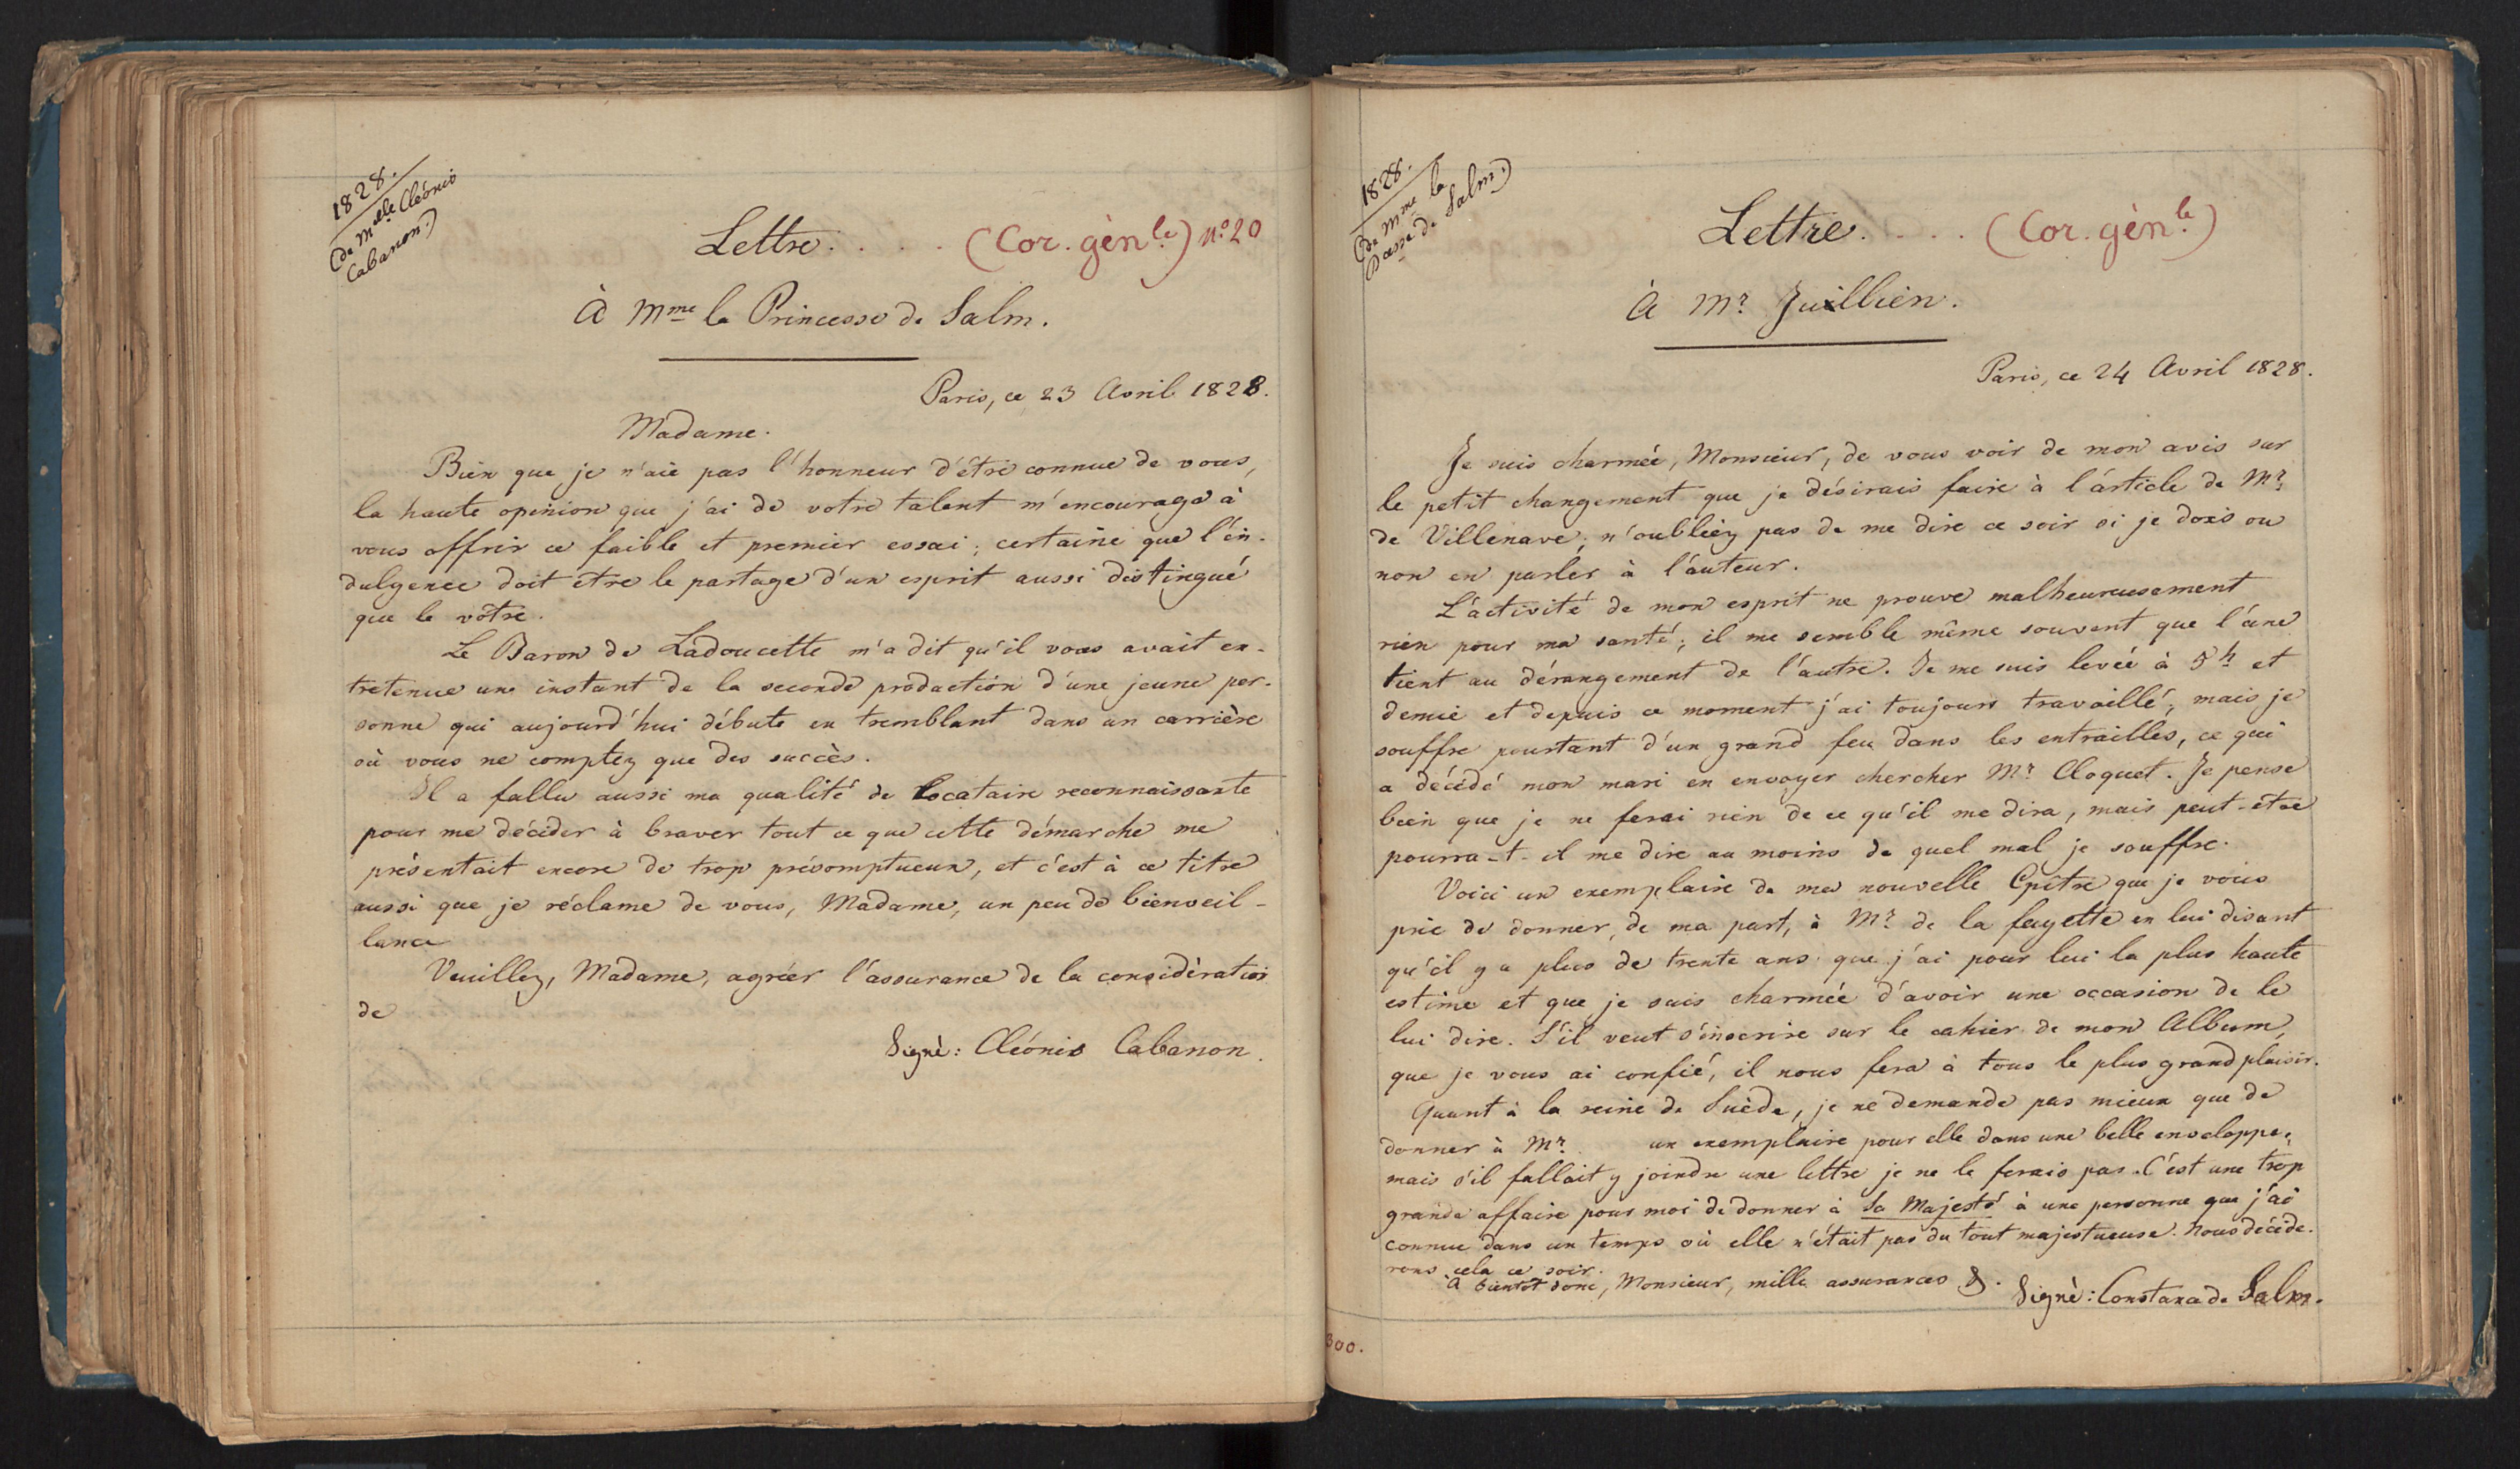 1828.
(de Melle Cléonis
Cabanon.)
Lettre. . . . (Cor. gènle) nº 20
À Mme la Princesse de Salm.
Paris, ce 23 Avril 1828.
Madame.
Bien que je n'aie pas l'honneur d'être connue de vous,
la haute opinion que j'ai de votre talent m'encourage à
vous offrir ce faible et premier essai; certaine que l'in-
dulgence doit être le partage d'un esprit aussi distingué
que le vôtre.
Le Baron de Ladoucette m'a dit qu'il vous avait en-
tretenue un instant de la seconde production d'une jeune per-
sonne qui aujourd'hui débute en tremblant dans un carrière
où vous ne comptez que des succès.
Il a fallu aussi ma qualité de locataire reconnaissante
pour me décider à braver tout ce que cette démarche me
présentait encore de trop présomptueux, et c'est à ce titre
aussi que je réclame de vous, Madame, un peu de bienveil-
lance
Veuillez, Madame, agréer l'assurance de la considération
de
Signé: Cléonis Cabanon.
1828.
(de Mme la
Pcesse de Salm.)
Lettre. . . . (Cor. gènle)
À Mr Juillien.
Paris, ce 24 Avril 1828.
Je suis charmée, Monsieur, de vous voir de mon avis sur
le petit changement que je désirais faire à l'article de Mr
de Villenave; n'oubliez pas de me dire ce soir si je dois ou
non en parler à l'auteur.
L'activité de mon esprit ne prouve malheureusement
rien pour ma santé; il me semble même souvent que l'une
tient au dérangement de l'autre. Je me suis levée à 5h et
demie et depuis ce moment j'ai toujours travaillé; mais je
souffre pourtant d'un grand feu dans les entrailles, ce qui
a décidé mon mari en envoyer chercher Mr Cloquet. Je pense
bien que je ne ferai rien de ce qu'il me dira, mais peut-être
pourra-t-il me dire au moins de quel mal je souffre.
Voici un exemplaire de ma nouvelle Epître que je vous
prie de donner, de ma part, à Mr de la fayette en lui disant
qu'il y a plus de trente ans que j'ai pour lui la plus haute
estime et que je suis charmée d'avoir une occasion de le
lui dire. S'il veut s'inscrire sur le cahier de mon Album,
que je vous ai confié, il nous fera à tous le plus grand plaisir.
Quant à la reine de Suède, je ne demande pas mieux que de
donner à Mr un exemplaire pour elle dans une belle enveloppe,
mais s'il fallait y joindre une lettre je ne le ferais pas. C'est une trop
grande affaire pour moi de donner à Sa Majesté à une personne que j'ai
connue dans un temps où elle n'était pas du tout majestueuse. Nous décide-
rons cela ce soir.
A bientôt donc, Monsieur, mille assurances &.
Signé: Constance de Salm.
300.